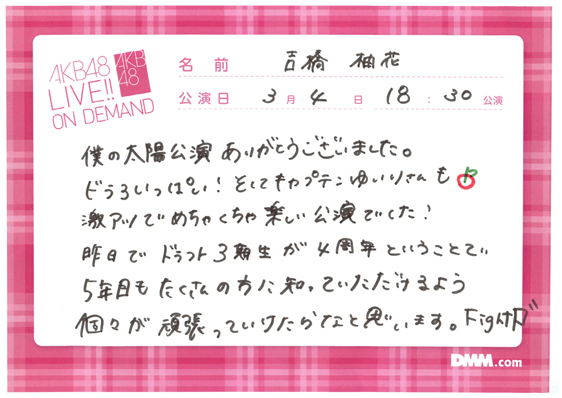 AKB48
LIVE!!
ON DEMAND
AKB
48
名前 吉橋 柚花
公演日 3月4日 18:30公演
僕の太陽公演 ありがとうございました。
ドラ3いっぱい! そしてキャプテンゆいりさんも
激アツでめちゃくちゃ楽しい公演でした!
昨日で ドラフト3期生が4周年ということで
5年目もたくさんの方に知っていただけるよう
個々が頑張っていけたらなと思います。Fight
DMM.com